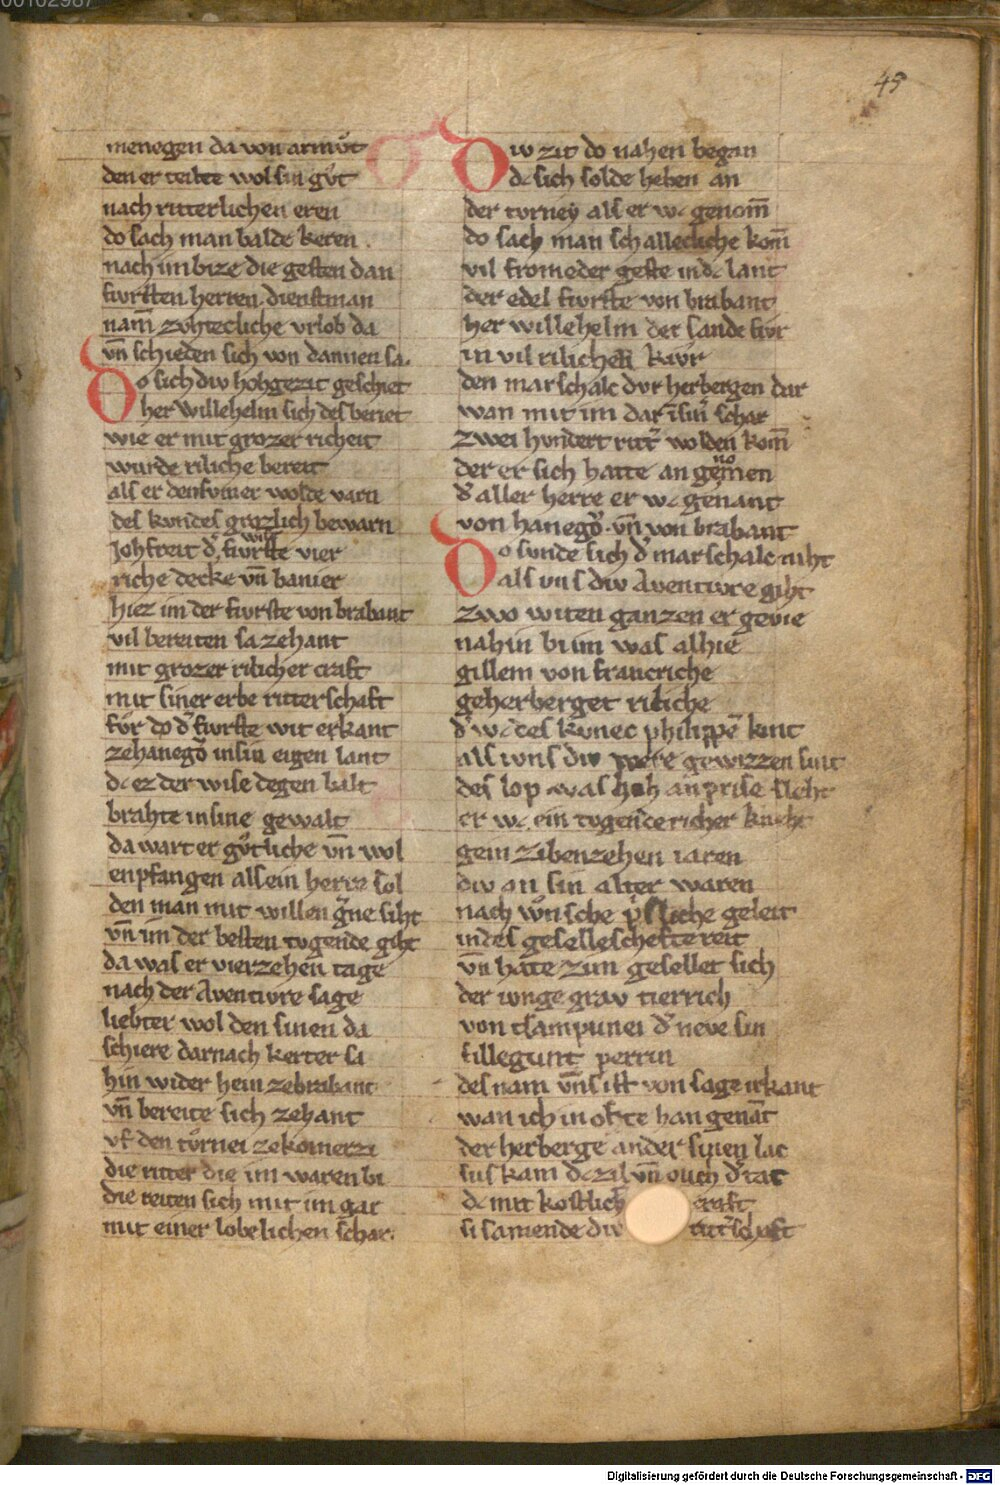 45
menegen da von armuͦt
den er teilte wol sin guͦt
nach ritterlichen eren
do sach man balde keren
nach im bize die gesten dan
fivrsten herren dienstman
nam̄ zvhtecliche vrlob da
vn̄ schieden sich von dannen sa.
Do sich div hohgezit geschiet
her Willehelm sich des beriet
wie er mit grozer richeit
wurde riliche bereit
als er den svmer wolde varn
des kvndes grozlich bewarn
Joh freit d͛ wise fivrste vier
riche decke vn̄ banier
hiez im der fivrste von brabant
vil bereiten sa zehant
mit grozer rilicher craft
mit siner erbe ritterschaft
fuͦr do d͛ fivrste wit erkant
zehanegoͮ in sin eigen lant
dc ez der wise degen balt
brahte in sine gewalt
da wart er guͦtliche vn̄ wol
enpfangen als ein herre sol
den man mit willen g͛ne siht
vn̄ im der besten tugende giht
da was er vierzehen tage
nach der Aventivre sage
liebter wol den sinen da
schiere darnach kerter sa
hin wider hein zebrabant
vn̄ bereite sich zehant
vf den tvrnei zekomerzi
die ritter die im waren bi
die reiten sich mit im gar
mit einer lobelichen schar.
Div zit do nahen began
dc sich solde heben an
der tvrney als er wc genom̄
do sach man schallecliche kom̄
vil fromeder geste in dc lant
der edel fivrste von brabant
her willehelm der sande fvr
in vil rilicher kivr
den marschalc dvr herbergen dar
wan mit im dar in sin͛ schar
zwei hvndert ritt͛ wolden kom̄
der er sich hatte an genomen
d͛ aller herre er wc genant
von hanegoͮ vn̄ von brabant
Do sunde sich d͛ marschalc niht
als vns div Aventivre giht
zwo witen ganzen er gevie
nahin bi im was alhie
gillem von francriche
geherberget riliche
d͛ wc des kvnec philippen kint
als wns div mere gewizzen sint
des lop was hoh an prise sleht
er wc ein tvgende richer kneht
gein zibenzehen iaren
div an sin alter waren
nach wnsche p͛sliche geleit
in des geselleschefte reit
vn̄ hate zim gesellet sich
der ivnge grav tierrich
von tsampunei d͛ neve sin
fillegunt perrin
des nam vn̄s ist von sage irkant
wan ich in ofte han genāt
der herberge ander sinen lac
sus kam dc zil vn̄ ouch d͛ tac
dc mit kostlich craft
si samende div ritt͛schaft
Digitalisierung gefördert durch die Deutsche Forschungsgemeinschaft - DFG